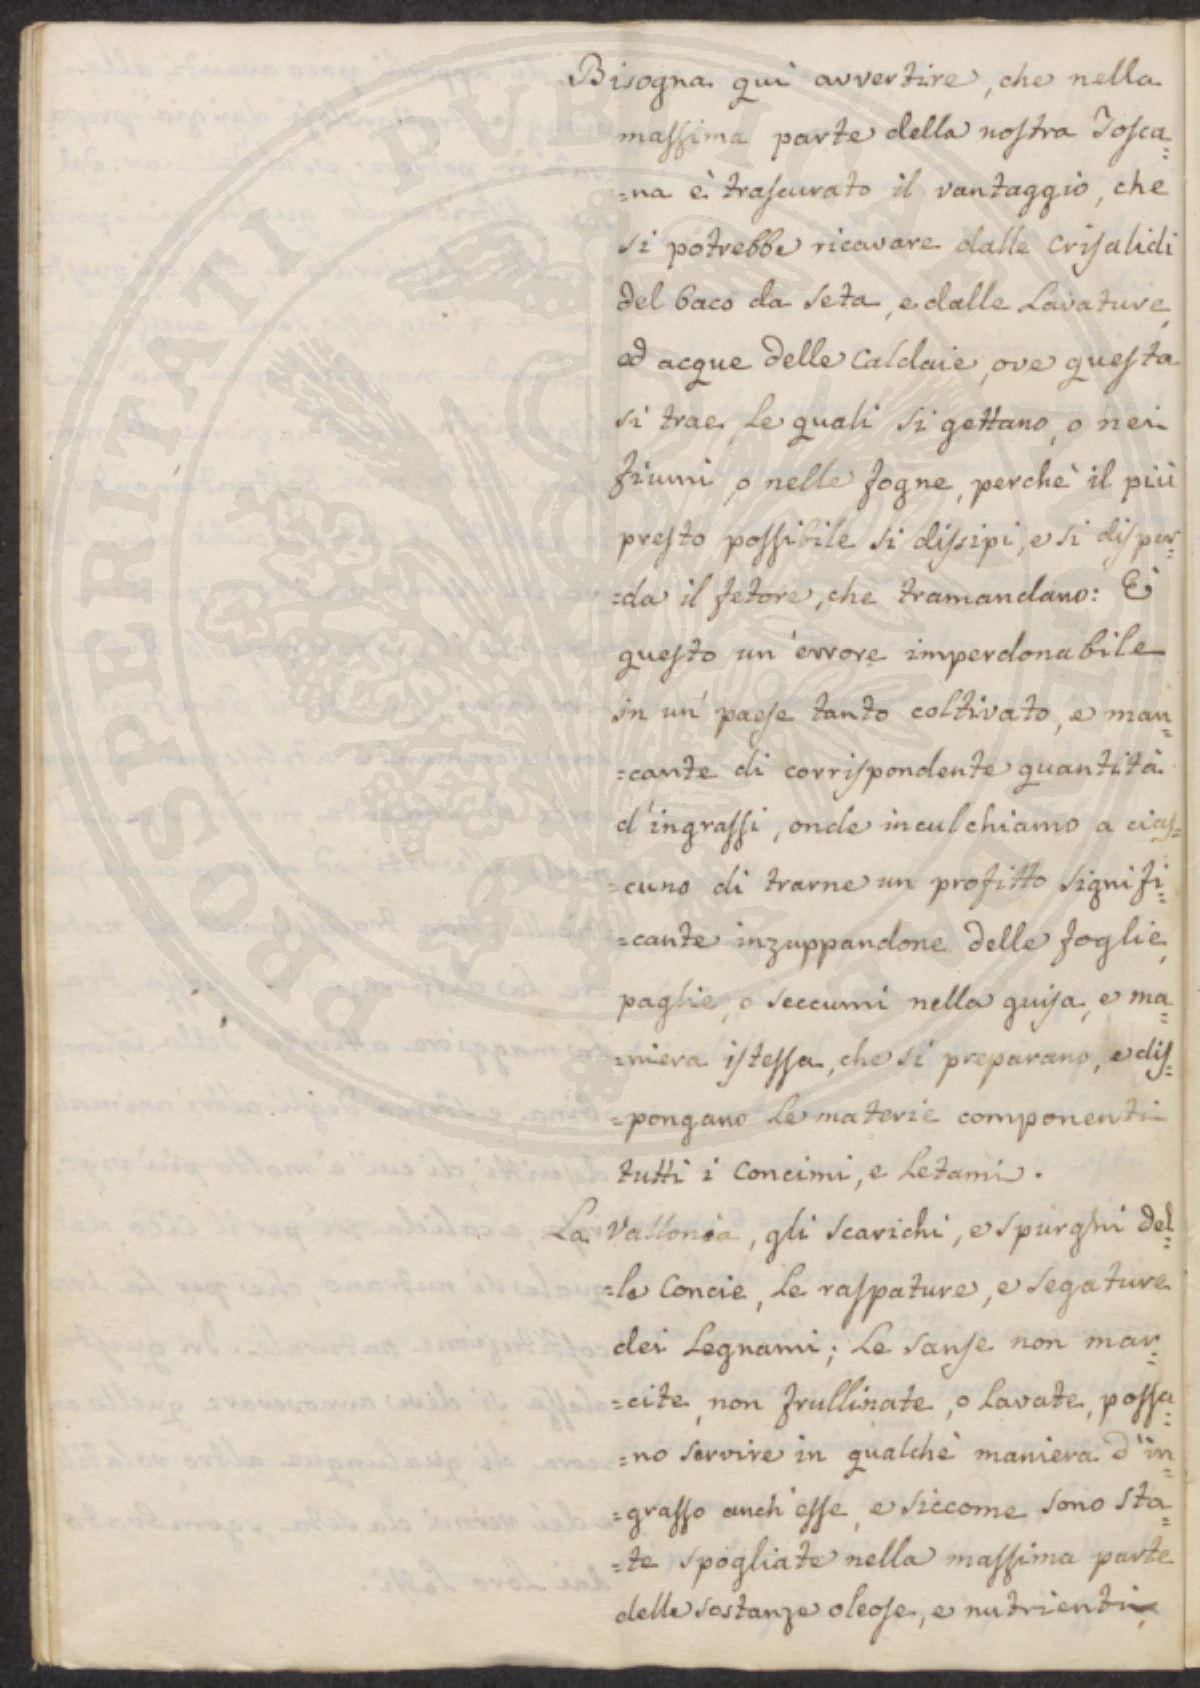 Bisogna quì avvertire, che nella
massima parte della nostra Tosca=
=na è trascurato il vantaggio, che
si potrebbe ricavare dalle Crisalidi
del baco da Seta, e dalle Lavature,
ed acque delle Caldaie, ove questa
si trae, Le quali si gettano, o nei
fiumi, o nelle fogne, perchè il più
presto possibile si dissipi, e si disper=
=da il fetore, che tramandano: È
questo un'errore imperdonabile
in un' paese tanto coltivato, e man=
=cante di corrispondente quantità
d'ingrassi, onde inculchiamo a cias=
=cuno di trarne un profitto signifi=
=cante inzuppandone delle foglie,
paglie, o seccumi nella guisa, e ma=
=niera istessa, che si preparano, e dis=
=pongano Le materie componenti
tutti i Concimi, e Letami.
La Vallonia, gli scarichi, e spurghi del=
=le Concie, Le raspature, e segature
dei Legnami; Le sanse non mar=
=cite, non frullinate, o Lavate, possa=
=no servire in qualchè maniera d'in=
=grasso anch'esse, e siccome sono sta=
=te spogliate nella massima parte
delle sostanze oleose, e nutrienti,
PROSPERITATI PUBLICAE